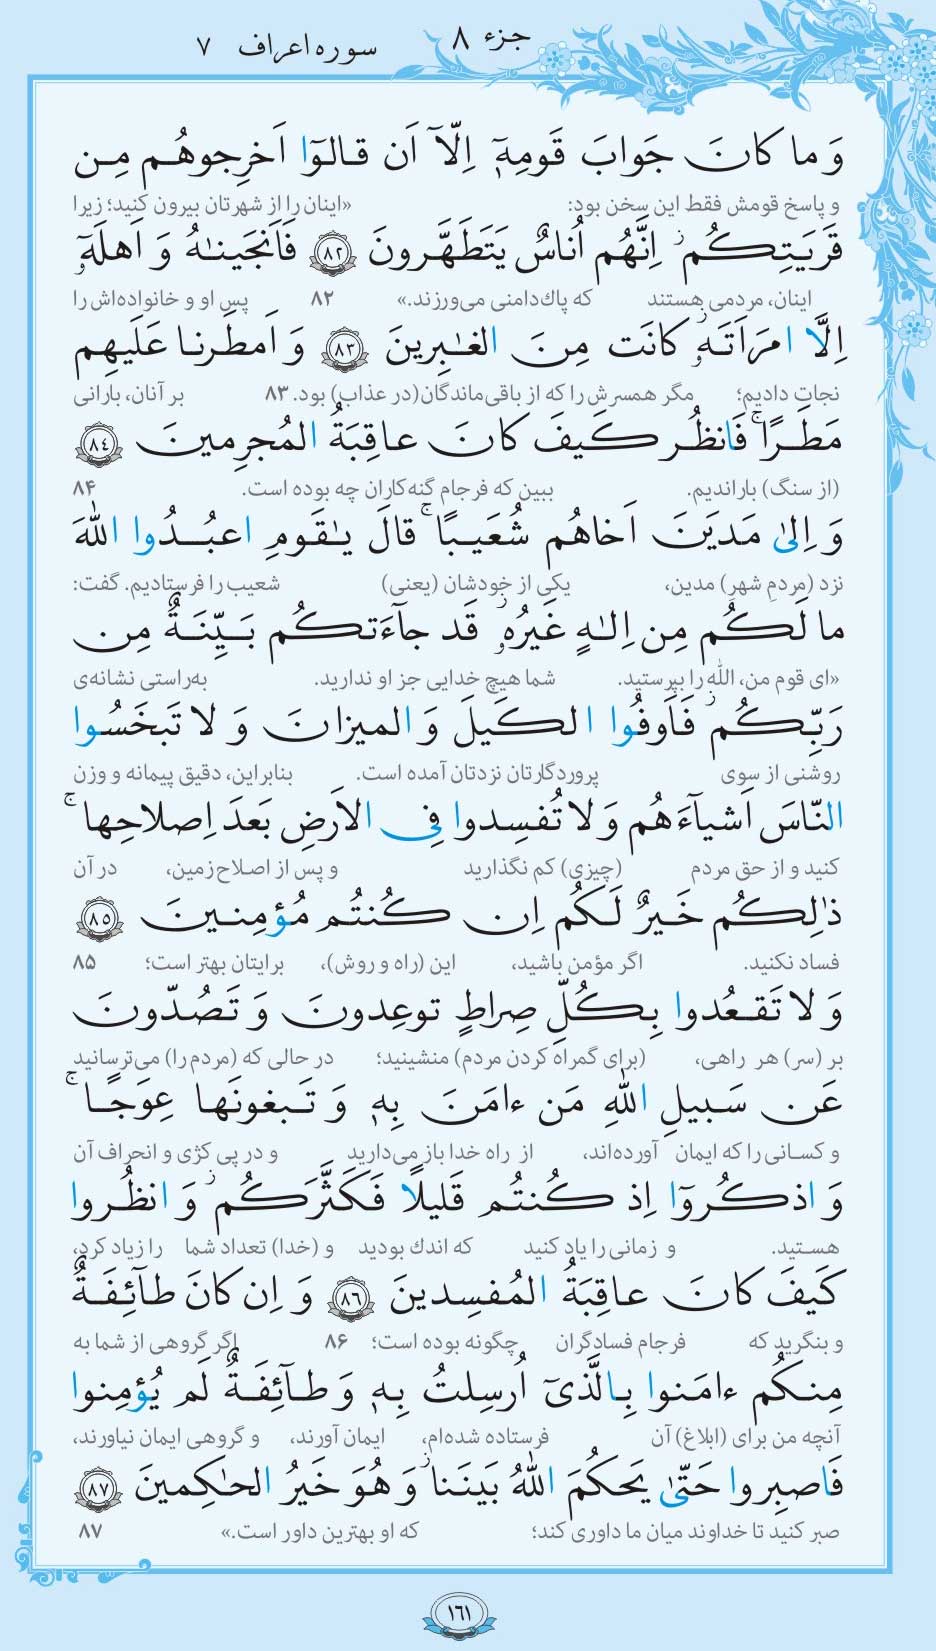 جزء ۸
سوره اعراف ۷
وَ ما كانَ جَوابَ قَومِهٖٓ اِلّآ اَن قالوٓا اَخرِجوهُم مِن
و پاسخ قومش فقط این سخن بود: «اینان را از شهرتان بیرون کنید؛ زیرا
قَریَتِكُم ۖ اِنَّهُم اُناسٌ یَتَطَهَّرونَ ﴿۸۲﴾ فَاَنجَیناهُ وَ اَهلَهٗٓ
اینان، مردمی هستند که پاك‌دامنی می‌ورزند.» ۸۲ پس او و خانواده‌اش را
اِلَّا امرَاَتَهٗ كانَت مِنَ الغٰبِرینَ ﴿۸۳﴾ وَ اَمطَرنا عَلَیهِم
نجات دادیم؛ مگر همسرش را که از باقی‌ماندگان(در عذاب) بود. ۸۳ بر آنان، بارانی
مَطَرًا ۖ فَانظُر كَیفَ كانَ عاقِبَةُ المُجرِمینَ ﴿۸۴﴾
(از سنگ) باراندیم. ببین که فرجام گنه‌کاران چه بوده است. ۸۴
وَ اِلىٰ مَدیَنَ اَخاهُم شُعَیبًا ۚ قالَ یٰقَومِ اعبُدُوا اللّٰهَ
نزد (مردمِ شهرِ) مدین، یکی از خودشان (یعنی) شعیب را فرستادیم. گفت:
ما لَكُم مِن اِلٰهٍ غَیرُهٗ ۖ قَد جآءَتكُم بَیِّنَةٌ مِن
«ای قوم من، الله را بپرستید. شما هیچ خدایی جز او ندارید. به‌راستی نشانه‌ی
رَبِّكُم ۖ فَاَوفُوا الكَیلَ وَ المیزانَ وَ لا تَبخَسُوا
روشنی از سوی پروردگارتان نزدتان آمده است. بنابراین، دقیق پیمانه و وزن
النّاسَ اَشیآءَهُم وَ لا تُفسِدوا فِی الاَرضِ بَعدَ اِصلاحِها ۚ
کنید و از حق مردم (چیزی) کم نگذارید و پس از اصلاح زمین، در آن
ذٰلِكُم خَیرٌ لَكُم اِن كُنتُم مُؤمِنینَ ﴿۸۵﴾
فساد نکنید. اگر مؤمن باشید، این (راه و روش)، برایتان بهتر است؛ ۸۵
وَ لا تَقعُدوا بِكُلِّ صِراطٍ توعِدونَ وَ تَصُدّونَ
بر (سر) هر راهی، (برای گمراه کردن مردم) منشینید؛ در حالی که (مردم را) می‌ترسانید
عَن سَبیلِ اللّٰهِ مَن ءامَنَ بِهٖ وَ تَبغونَها عِوَجًا ۚ
و کسانی را که ایمان آورده‌اند، از راه خدا باز می‌دارید و در پی کژی و انحراف آن
وَ اذكُروٓا اِذ كُنتُم قَلیلًا فَكَثَّرَكُم ۖ وَ انظُروا
هستید. و زمانی را یاد کنید که اندك بودید و (خدا) تعداد شما را زیاد کرد،
كَیفَ كانَ عاقِبَةُ المُفسِدینَ ﴿۸۶﴾ وَ اِن كانَ طآئِفَةٌ
و بنگرید که فرجام فسادگران چگونه بوده است؛ ۸۶ اگر گروهی از شما به
مِنكُم ءامَنوا بِالَّذیٓ اُرسِلتُ بِهٖ وَ طآئِفَةٌ لَم یُؤمِنوا
آنچه من برای (ابلاغ) آن فرستاده شده‌ام، ایمان آورند، و گروهی ایمان نیاورند،
فَاصبِروا حَتّىٰ یَحكُمَ اللّٰهُ بَینَنا ۚ وَ هُوَ خَیرُ الحٰكِمینَ ﴿۸۷﴾
صبر کنید تا خداوند میان ما داوری کند؛ که او بهترین داور است.» ۸۷
۱۶۱